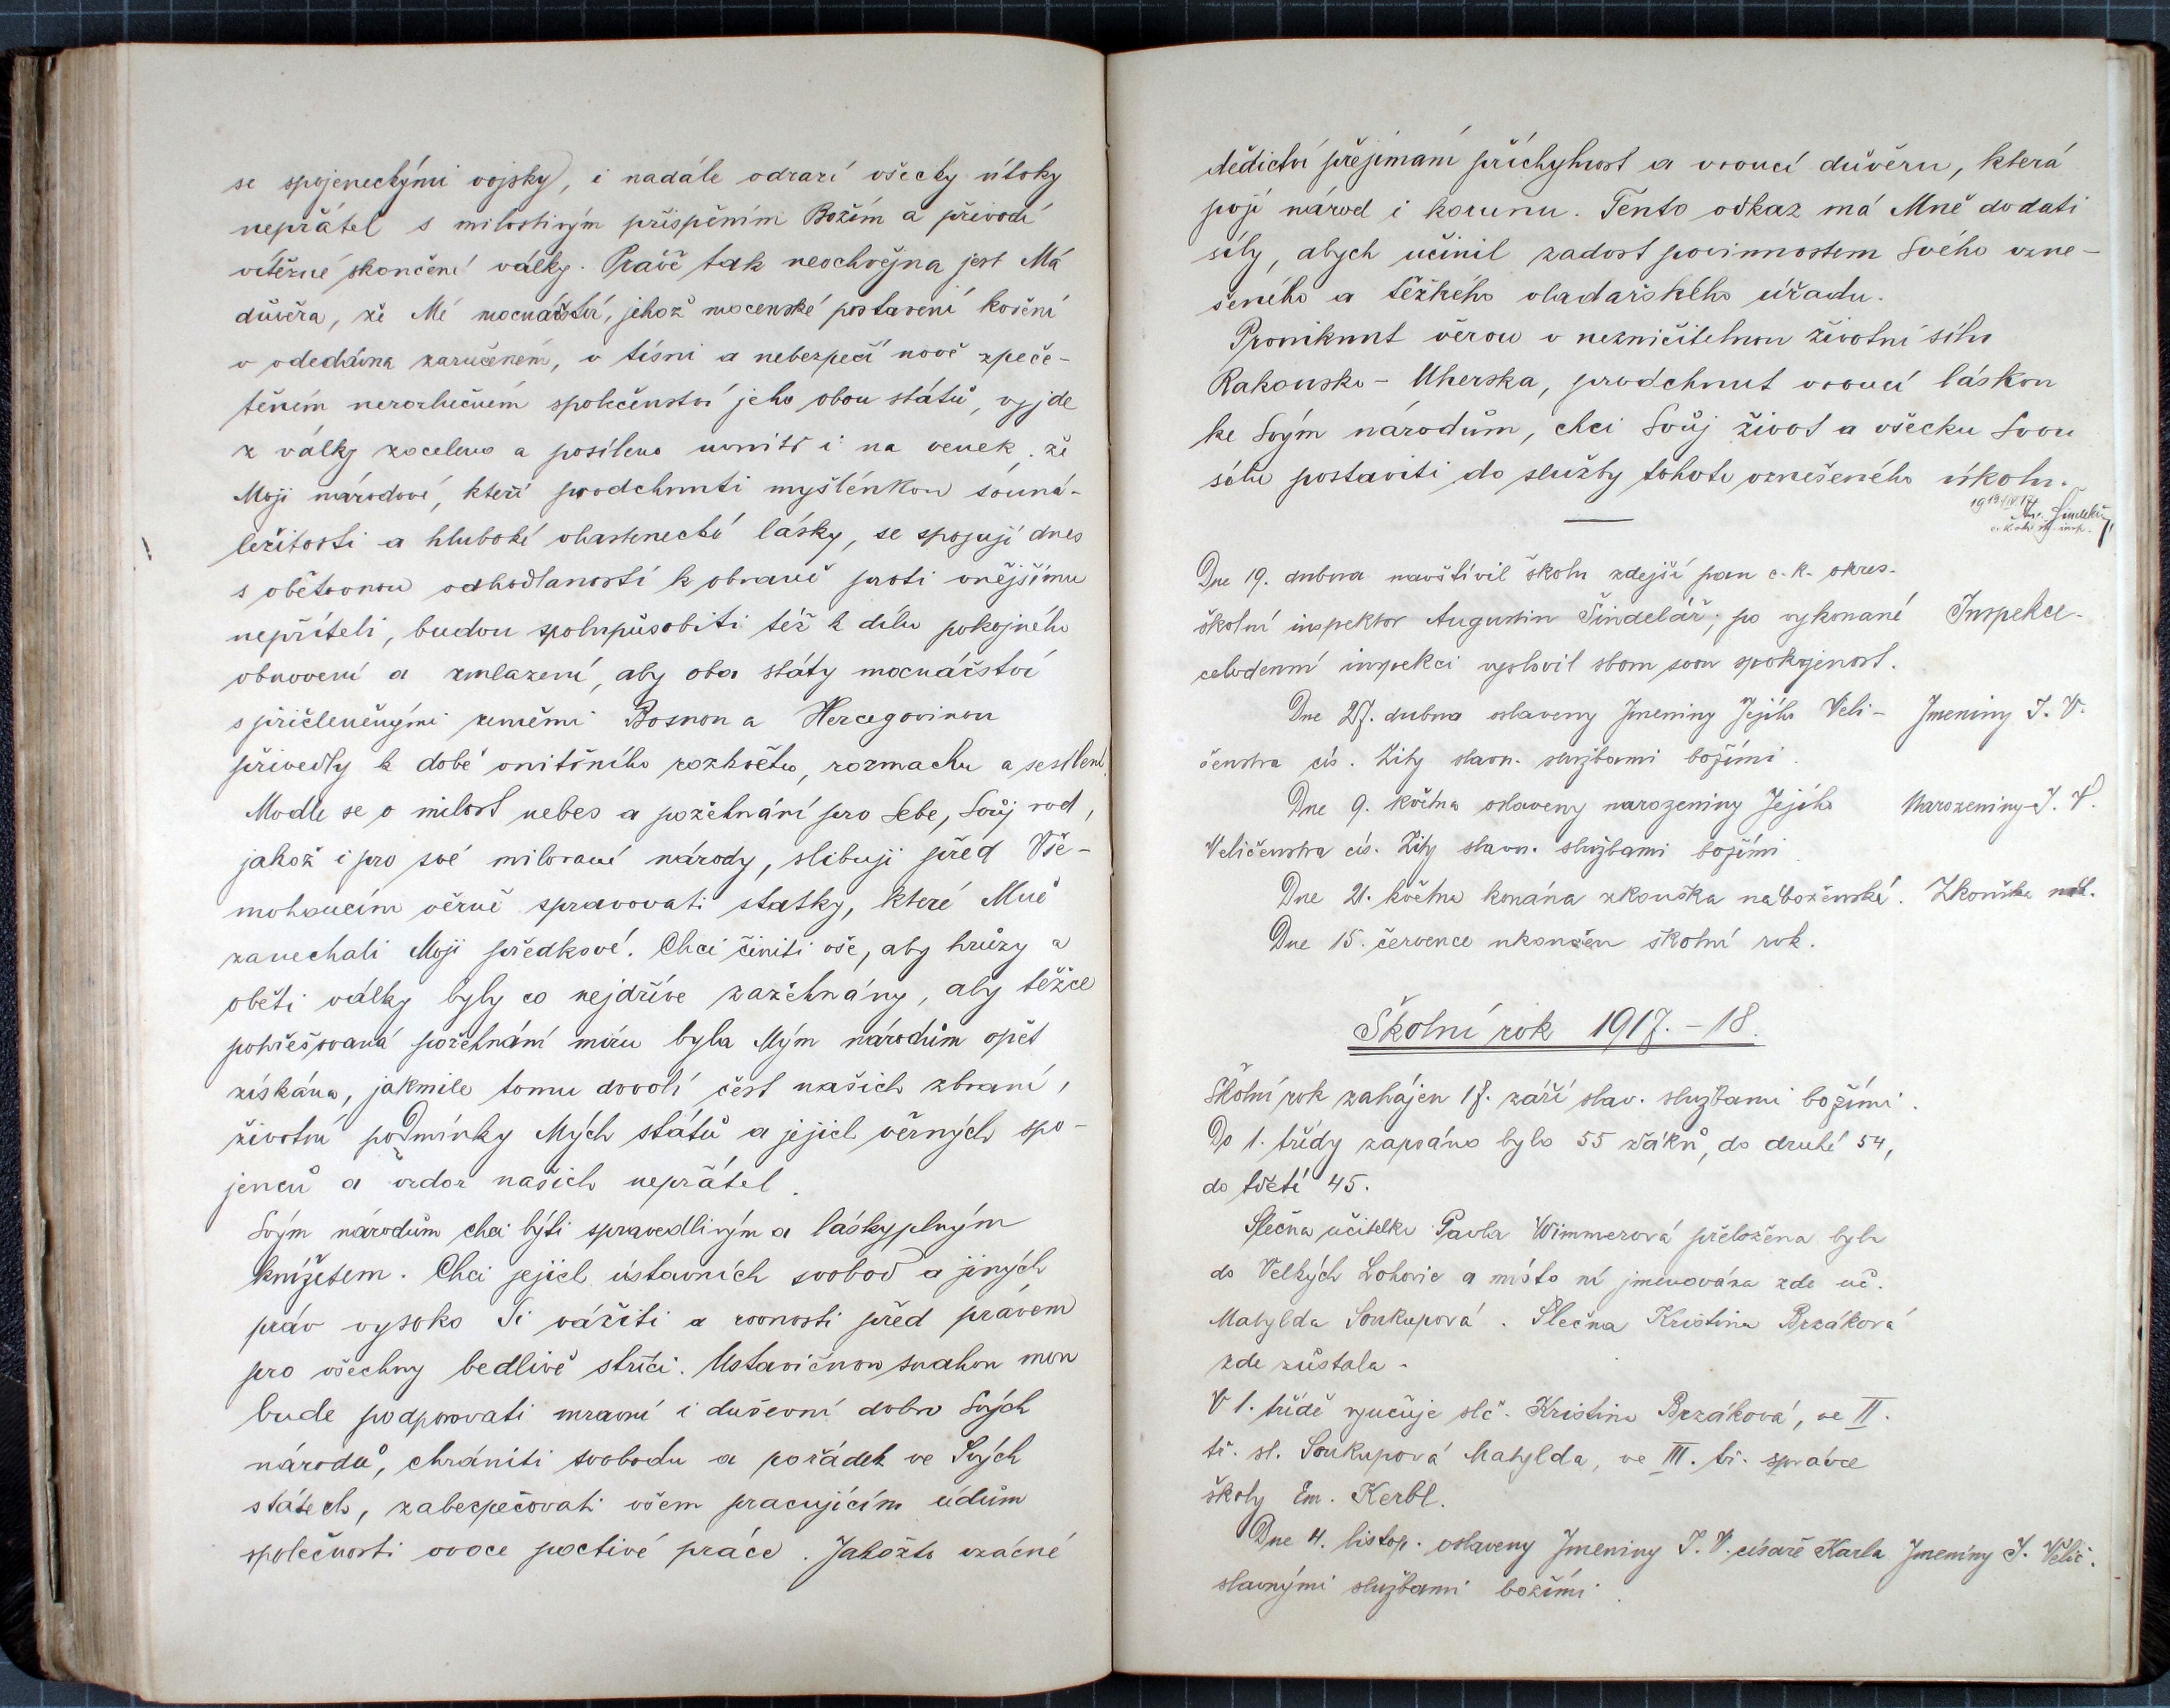 se spojeneckými vojsky, i nadále odrazí všecky útoky
nepřátel s milostivým přispěním Božím a přivodí
vítězné skončení války. Právě tak neochvějna jest Má
důvěra, že Mé mocnářství, jehož mocenské postavení koření
v odedávna zaručeném, v tísni a nebezpečí nově zpeče-
těném nerozlučném společenství jeho obou států, vyjde
z války zoceleno a posíleno uvnitř i na venek. že
Moji národové, kteří prodchnuti myšlénkou souná-
ležitosti a hluboké vlastenecké lásky, se spojují dnes
s obětovnou odhodlaností k obraně proti vnějšímu
nepříteli, budou spolupůsobiti též k dílu pokojného
obnovení a zmlazení, aby oba státy mocnářství
s přičleněnými zeměmi Bosnou a Hercegovinou
přivedly k době vnitřního rozkvětu, rozmachu a sesílení.
Modle se o milost nebes a požehnání pro Sebe, Svůj rod,
jakož i pro své milované národy, slibuji před Vše-
mohoucím věrně spravovati statky, které Mně
zanechali Moji předkové. Chci činiti vše, aby hrůzy a
oběti války byly co nejdříve zažehnány, aby těžce
pohřešovaná požehnání míru byla Mým národům opět
získána, jakmile tomu dovolí čest našich zbraní,
životní podmínky Mých států a jejich věrných spo-
jenců a vzdor našich nepřátel.
Svým národům chci býti spravedlivým a láskyplným
knížetem. Chci jejich ústavních svobod a jiných
práv vysoko si vážiti a rovnosti před právem
pro všechny bedlivě stříci. Ustavičnou snahou mou
bude podporovati mravní i duševní dobro Svých
národů, chrániti svobodu a pořádek ve Svých
státech, zabezpečovati všem pracujícím údům
společnosti ovoce poctivé práce. Jakožto vzácné
dědictví přejímám příchylnost a vroucí důvěru, která
pojí národ i korunu. Tento odkaz má Mně dodati
síly, abych učinil zadost povinnostem Svého vzne-
šeného a těžkého vladařského úřadu.
Proniknut věrou v nezničitelnou životní sílu
Rakousko-Uherska, prodchnut vroucí láskou
ke Svým národům, chci Svůj život a všecku Svou
sílu postaviti do služby tohoto vznešeného úkolu.
Šindelář
Dne 19. dubna navštívil školu zdejší pan c. k. okres.
školní inspektor Augustin Šindelář; po vykonané Inspekce.
celodenní inspekci vyslovil sboru svou spokojenost.
Dne 27. dubna oslaveny Jmeniny Jejího Veli- Jmeniny J. V.
čenstva cís. Zity slavn. službami božími.
Dne 9. května oslaveny narozeniny Jejího Narozeniny J. V.
Veličenstva cís. Zity slavn. službami božími.
Dne 21. května konána zkouška náboženská. Zkouška náb.
Dne 15. července ukončen školní rok.
Školní rok 1917.-18.
Školní rok zahájen 17. září slav. službami božími.
Do 1. třídy zapsáno bylo 55 žáků, do druhé 54,
do třetí 45.
Slečna učitelka Pavla Wimmerová přeložena byla
do Velkých Lohovic a místo ní jmenována zde uč.
Matylda Soukupová. Slečna Kristina Brzáková
zde zůstala.
V 1. třídě vyučuje slč. Kristina Brzáková, ve II.
tř. sl. Soukupová Matylda, ve III. tř. správce
školy Em. Kerbl.
Dne 4. listop. oslaveny Jmeniny J. V. císaře Karla Jmeniny J. Velič.
slavnými službami božími.